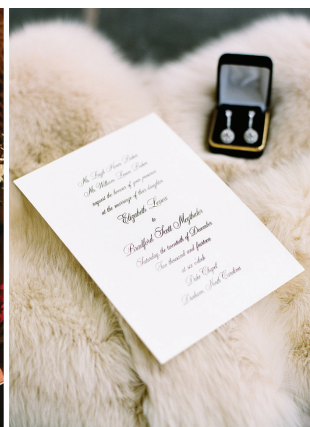 Mr. William
request the honour of your presence
at the marriage of their daughter
Elizabeth
to
Bradford Scott
Saturday, the twentieth of December
Two thousand and fourteen
at six o'clock
Duke Chapel
Durham, North Carolina